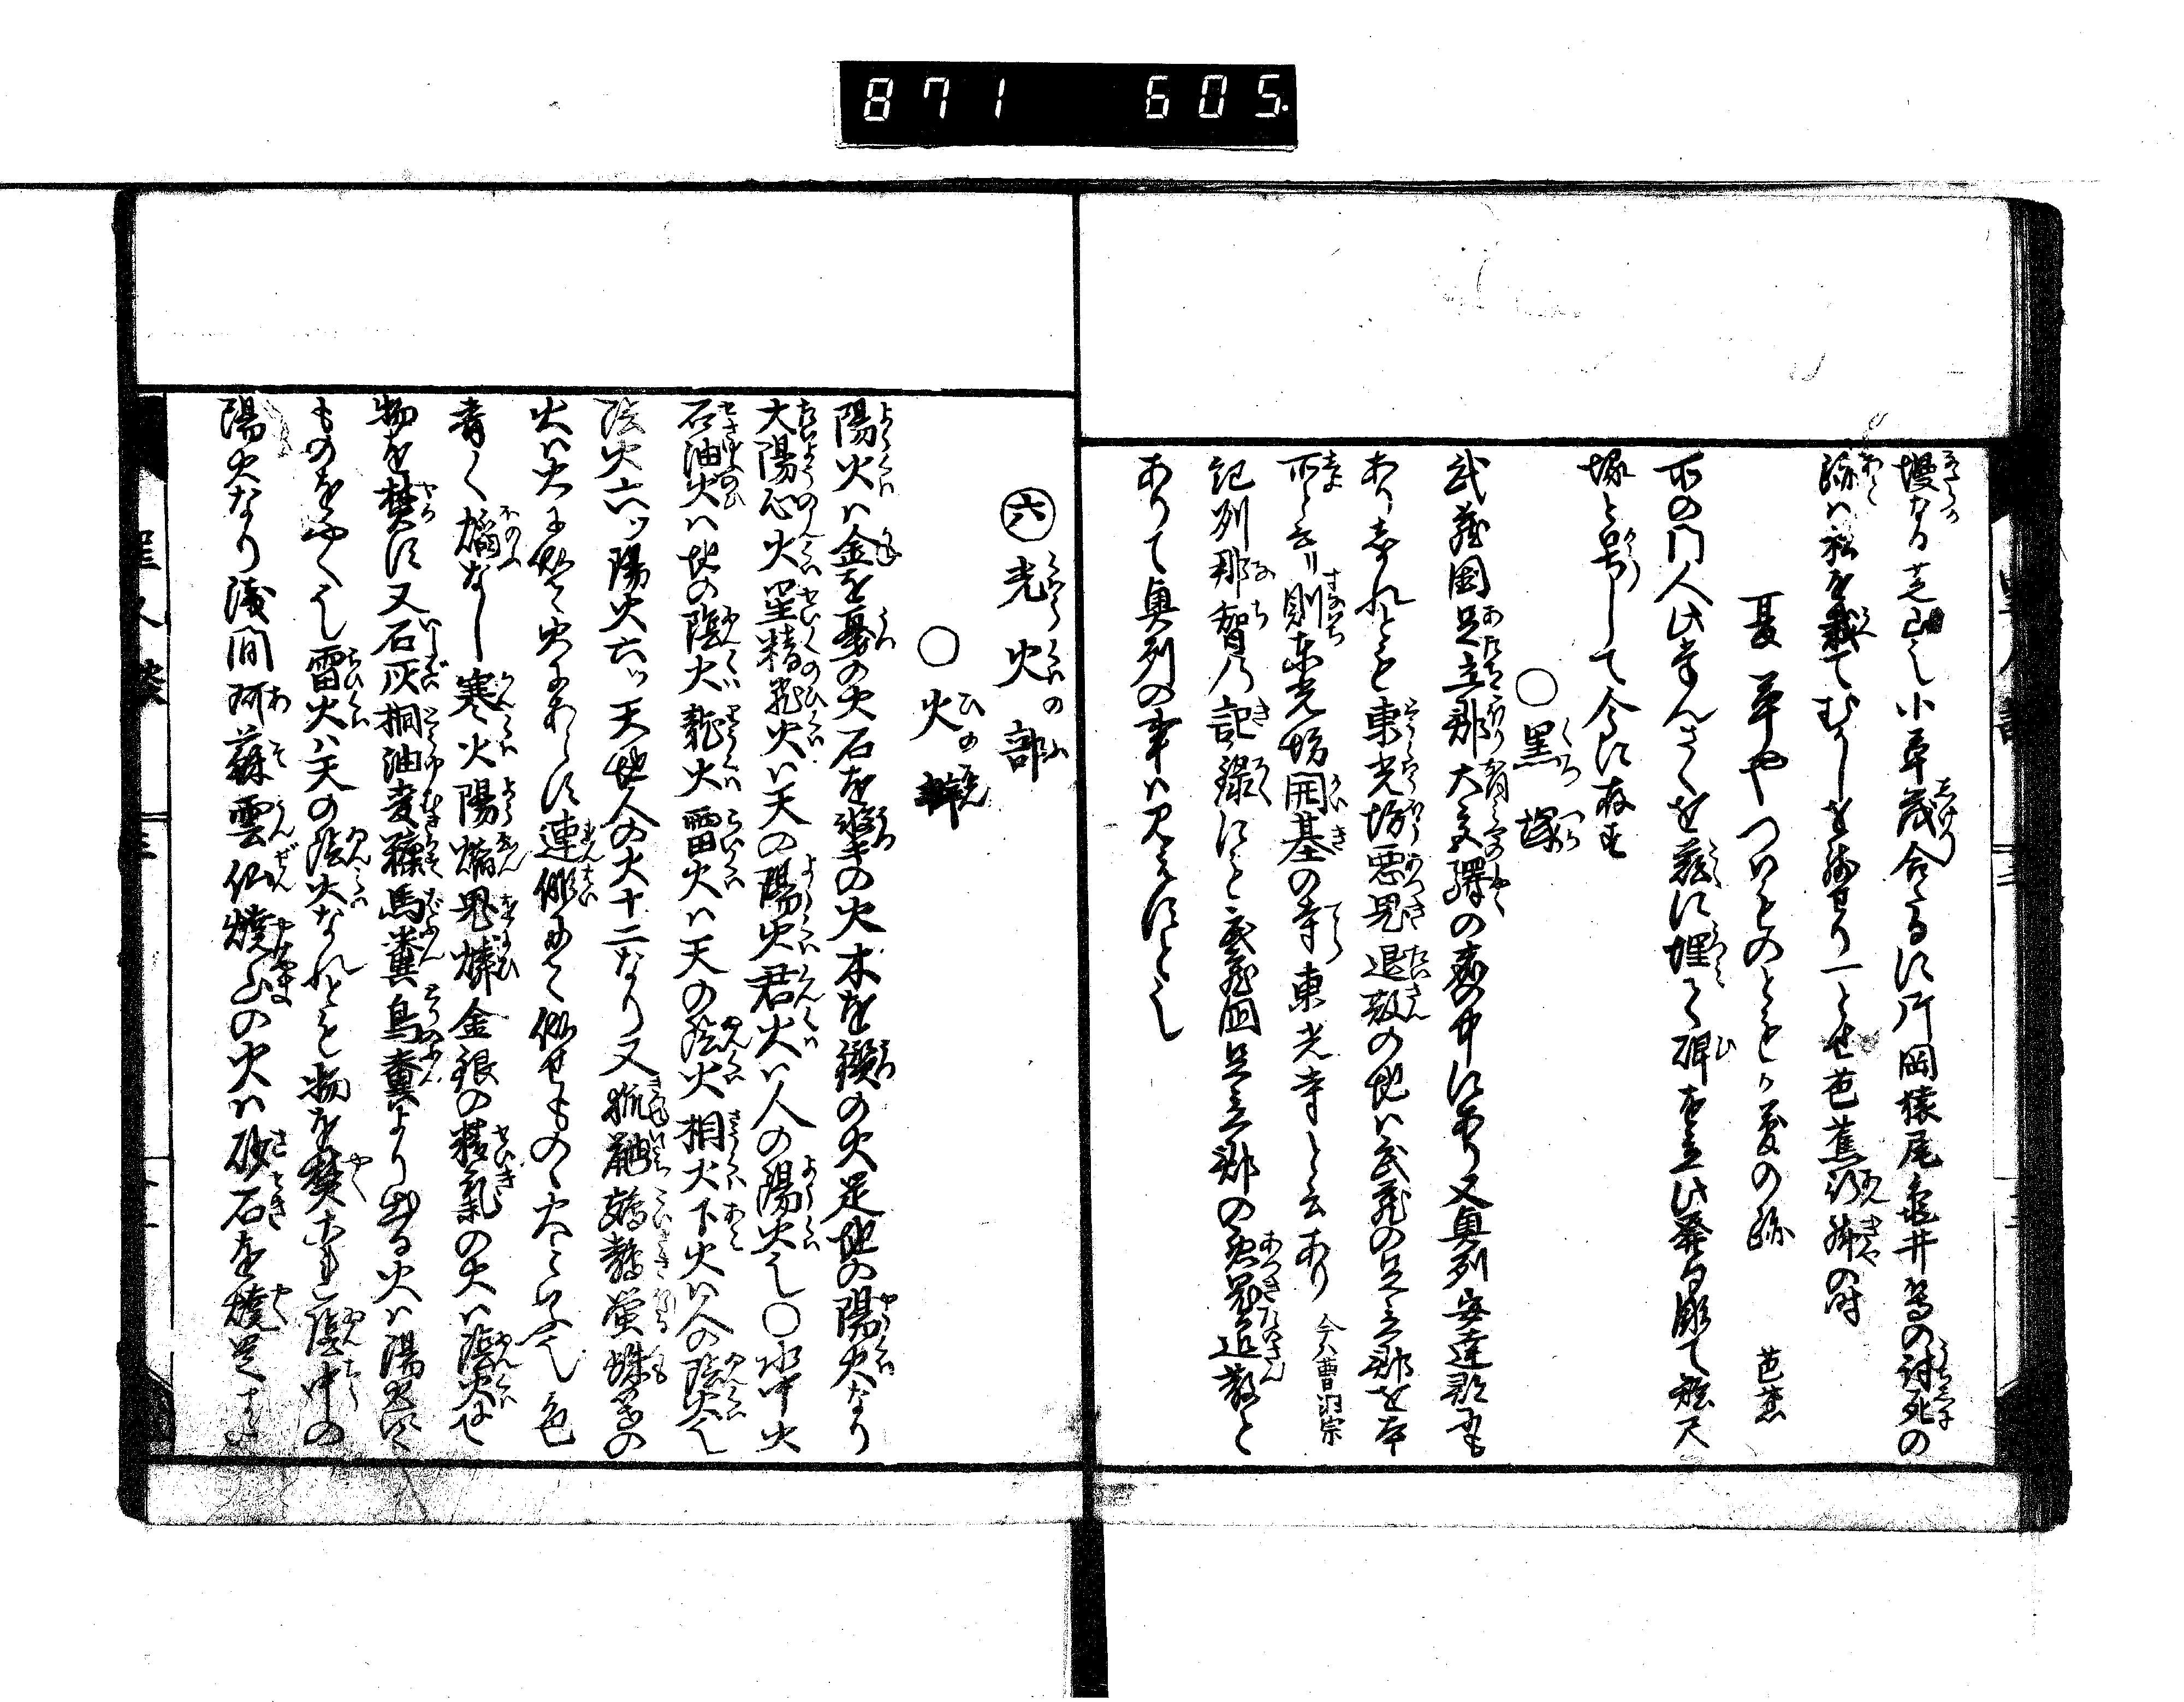 871 605.
墁なる芝山也小草茂合たるに片岡猿尾亀井等の討死の
跡ハ松を栽てむかしを残せり一とせ芭蕉行脚の時
夏草やつハものともか夢の跡 芭蕉
所の門人此たんさくを茲に埋て碑を立此発句彫て
塚と号して今に存す
○黒塚
武蔵国足立郡大宮驛の森の中に有又奥列安達郡にも
ありされとも東光坊悪鬼退散の地ハ武蔵の足立郡を本
所と云リ則東光坊開基の寺東光寺と云あり 今ハ曹洞宗
記列那智の記録にも武蔵国足立郡の悪鬼退散と
ありて奥列の事ハ見えすとそ
六 光火の部
○火の辯
陽火ハ金を戞の火石を撃の火木を鑚の火是地の陽火なり
大陽心火星精飛火ハ天の陽火君火ハ人の陽火也○水中火
石油火ハ地の陰火龍火雷火ハ天の陰火相火下火ハ人の陰火也
陰火六ッ陽火六ッ天地人の火十二なり又狐鼬鵁鶄蛍蛛等の
火ハ火に似て火にあらす連俳にて似せものゝ火といふ也色
青く焔なし寒火陽燐鬼燐金銀の精氣の火ハ陰火にて
物を焚す又石灰桐油麦糠馬糞鳥糞より出る火ハ陽火にて
ものをやく也雷火ハ天の陰火なれとも物を焚これ陰中の
陽火なり浅間阿蘇雲仙焼山の火ハ砂石を焼是